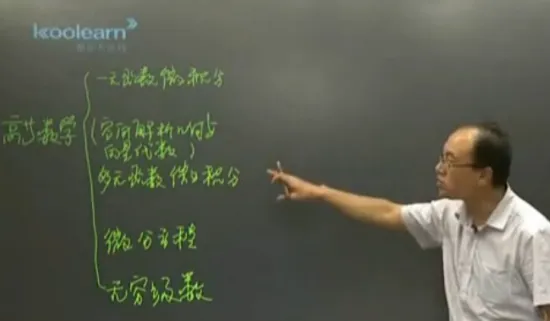 koolearn
高等数学
一元函数微积分
(空间解析几何与
向量代数)
多元函数微积分
微分方程
无穷级数